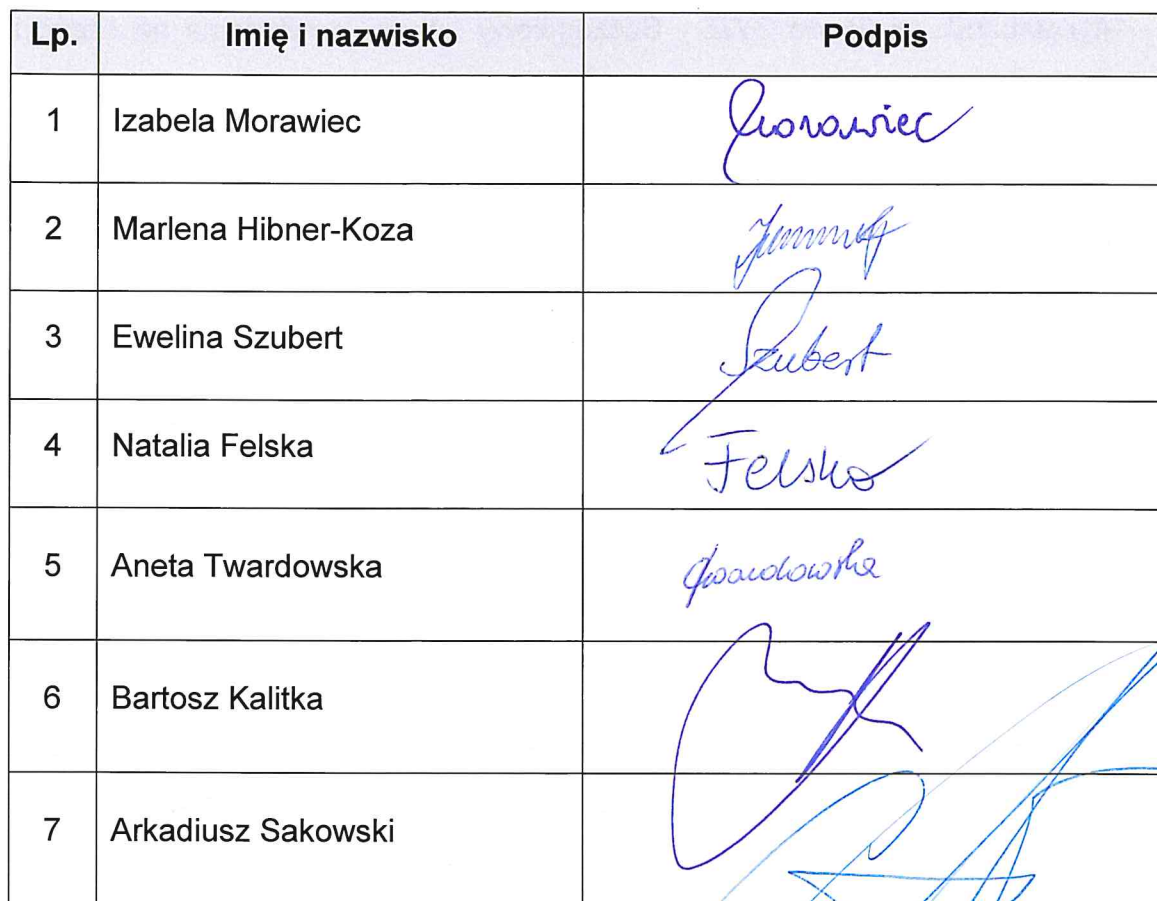 Lp. Imię i nazwisko Podpis
1 Izabela Morawiec Morawiec
2 Marlena Hibner-Koza
3 Ewelina Szubert Szubert
4 Natalia Felska Felska
5 Aneta Twardowska Twardowska
6 Bartosz Kalitka
7 Arkadiusz Sakowski